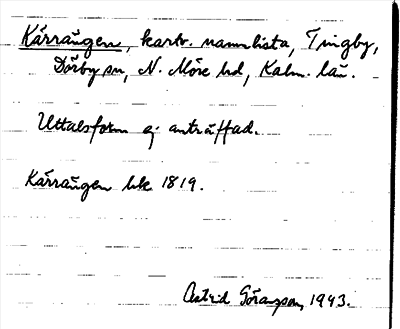 Kärrängen, kartv. namnlista, Tingby,
Dörby sn, N. Möre hd, Kalm. län.
Uttalsform ej anträffad.
Kärrängen lsk 1819.
Astrid Göransson, 1943.